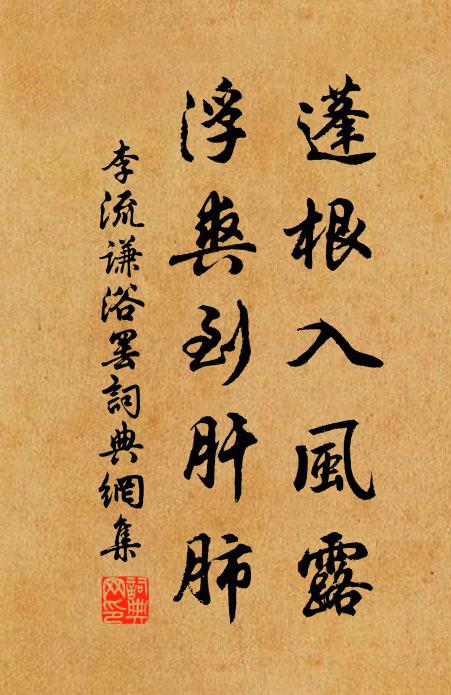 蓬根入風露
浮爽到肝肺
李流謙浴罢詞典網集
詞典网印